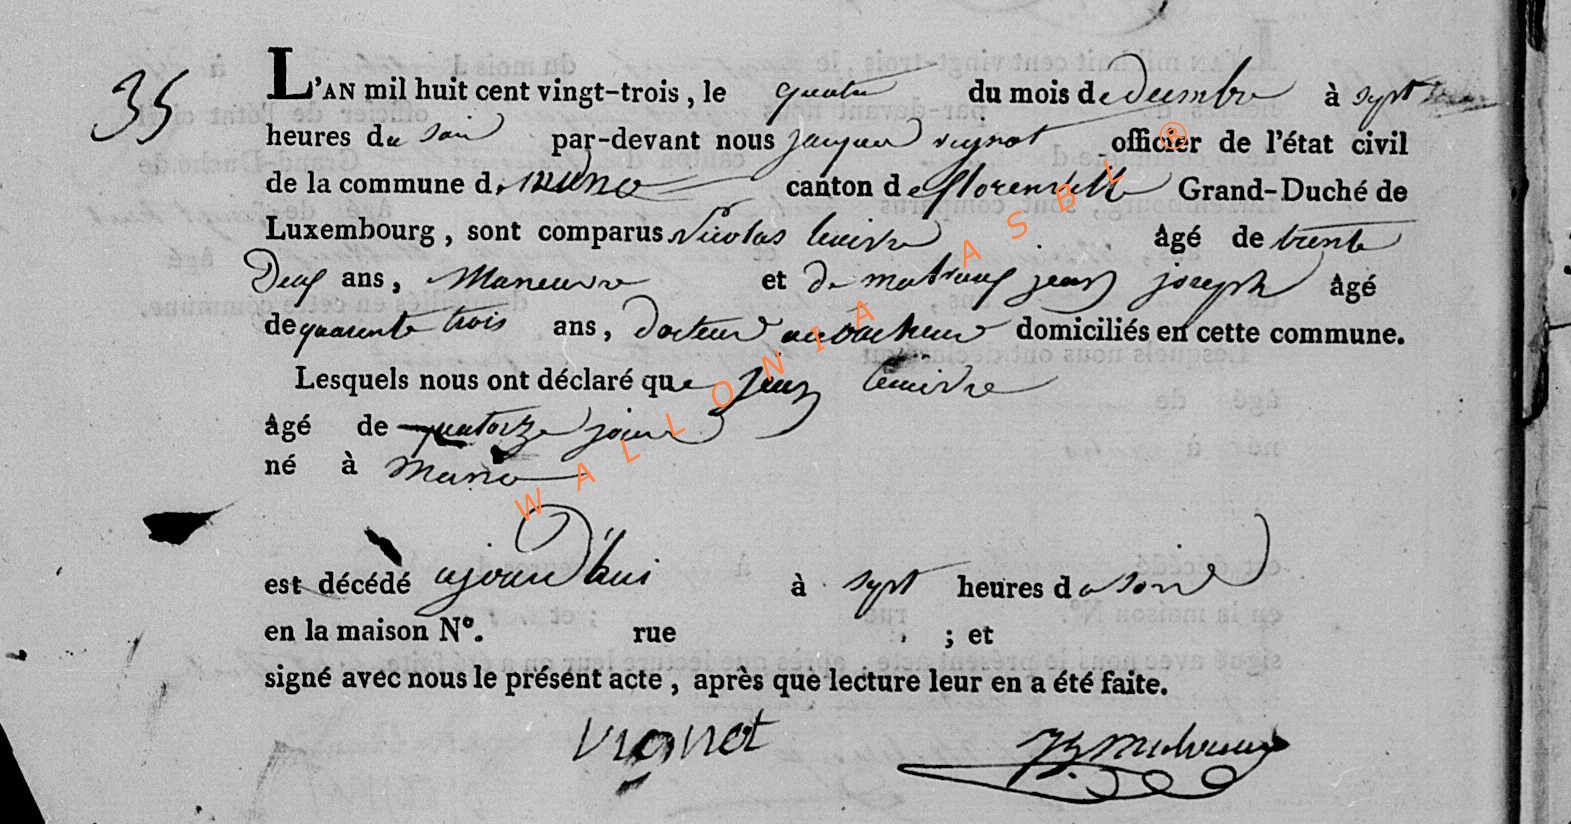 35
L'AN mil huit cent vingt-trois, le quatre du mois de decembre à sept
heures du soir par-devant nous jacques vignot officier de l'état civil
de la commune de muno canton de florenville Grand-Duché de
Luxembourg, sont comparus Nicolas âgé de trente
Deux ans, Maneuvre et jean joseph âgé
de quarente trois ans, docteur domiciliés en cette commune.
Lesquels nous ont déclaré que jean
âgé de quatorze jour
né à Muno
est décédé ajourd'hui à sept heures du soir
en la maison N°. rue ; et
signé avec nous le présent acte, après que lecture leur en a été faite.
vignot
WALLONIA ASBL ®